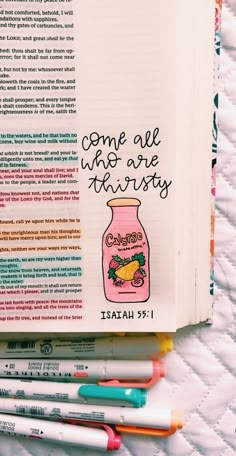 d not comforted, behold, I will
ndations with sapphires.
nd thy gates of carbuncles, and
the LORD; and great shall be the
hed: thou shalt be far from op-
or: for it shall not come near
but not by me: whosoever shall
ake.
h that bloweth the coals in the
rk; and I have created the waster
e shall prosper; and every tongue
t shalt condemn. This is the heri-
righteousness is of me, saith the
to the waters, and he that hath no
come, buy wine and milk without
which is not bread? and your
diligently unto me, and eat ye that
ness.
ear, and your soul shall live; and I
ures of David.
ss to the people, a leader and com-
knowest not, and nations that
of the LORD thy God, and for the
ound, call ye upon him while he
the unrighteous man his thoughts:
will have mercy upon him; and to
ghts, neither are your ways my
earth, so are my ways higher than
oughts.
the snow from heaven, and returneth
maketh it bring forth and bud, that it
e eater:
out of my mouth: it shall not return
I please, and it shall prosper in the
led forth with peace: the mountains
into singing, and all the trees of the
up the fir tree, and instead of the brier
come all
who are
thirsty
Calypso
ISAIAH 55:1
DOUBLE ENDED
MILDLINER